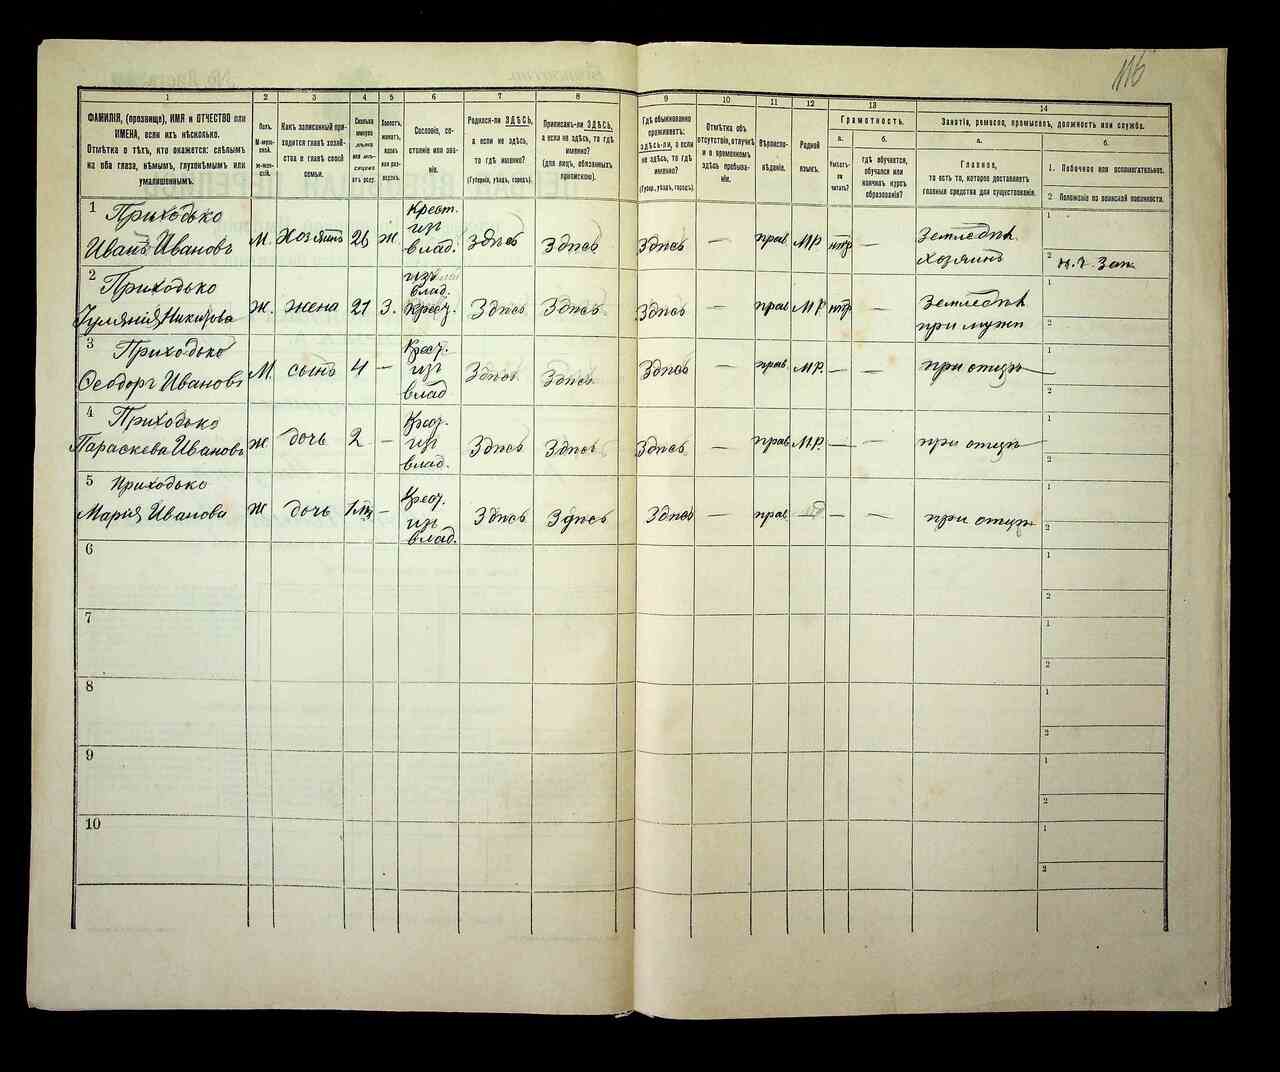 116
1
2
3
4
5
6
7
8
9
10
11
12
13
14
ФАМИЛІЯ, (прозвище), ИМЯ и ОТЧЕСТВО или
ИМЕНА, если ихъ нѣсколько.
Отмѣтка о тѣхъ, кто окажется: слѣпымъ
на оба глаза, нѣмымъ, глухонѣмымъ или
умалишеннымъ.
Полъ.
М-мужской.
Ж-женскій.
Какъ записанный приходится
главѣ хозяйства
и главѣ своей
семьи.
Сколько
минуло
лѣтъ
или мѣсяцевъ
отъ роду.
Холостъ,
женатъ,
вдовъ
или разведенъ.
Сословіе, состояніе
или званіе.
Родился-ли ЗДѢСЬ,
а если не здѣсь,
то гдѣ именно?
(Губернія, уѣздъ, городъ).
Приписанъ-ли ЗДѢСЬ,
а если не здѣсь, то гдѣ
именно?
(для лицъ, обязанныхъ
припискою).
Гдѣ обыкновенно
проживаетъ:
здѣсь-ли, а если
не здѣсь, то гдѣ
именно?
(Губер., уѣздъ, городъ).
Отмѣтка объ
отсутствіи, отлучкѣ
и о временномъ
здѣсь пребываніи.
Вѣроисповѣданіе.
Родной
языкъ.
Грамотность.
а.
Умѣетъ-ли
читать?
б.
гдѣ обучается,
обучался или
кончилъ курсъ
образованія?
Занятія, ремесло, промыселъ, должность или служба.
а.
Главное,
то есть то, которое доставляетъ
главныя средства для существованія.
б.
1. Побочное или вспомогательное.
2. Положеніе по воинской повинности.
1 Приходько
Иванъ Ивановъ М. Хозяинъ 26 Ж. Крест. изъ влад. Здѣсь Здѣсь Здѣсь — прав. МР. нтр — Земледѣл. хозяинъ
1
2
2 Приходько
Никитова Ж. жена 21 З. изъ влад. Крест. Здѣсь Здѣсь Здѣсь — прав. МР. нтр — Земледѣл. при мужѣ
1
2
3 Приходько
Феодоръ Ивановъ М. сынъ 4 — Крест. изъ влад. Здѣсь Здѣсь Здѣсь — прав. МР. — — при отцѣ
1
2
4 Приходько
Параскева Иванова Ж дочь 2 — Крест. изъ влад. Здѣсь Здѣсь Здѣсь — прав. МР. — — при отцѣ
1
2
5 Приходько
Марія Иванова Ж дочь 1 м — Крест. изъ влад. Здѣсь Здѣсь Здѣсь — прав. — — при отцѣ
1
2
6
1
2
7
1
2
8
1
2
9
1
2
10
1
2